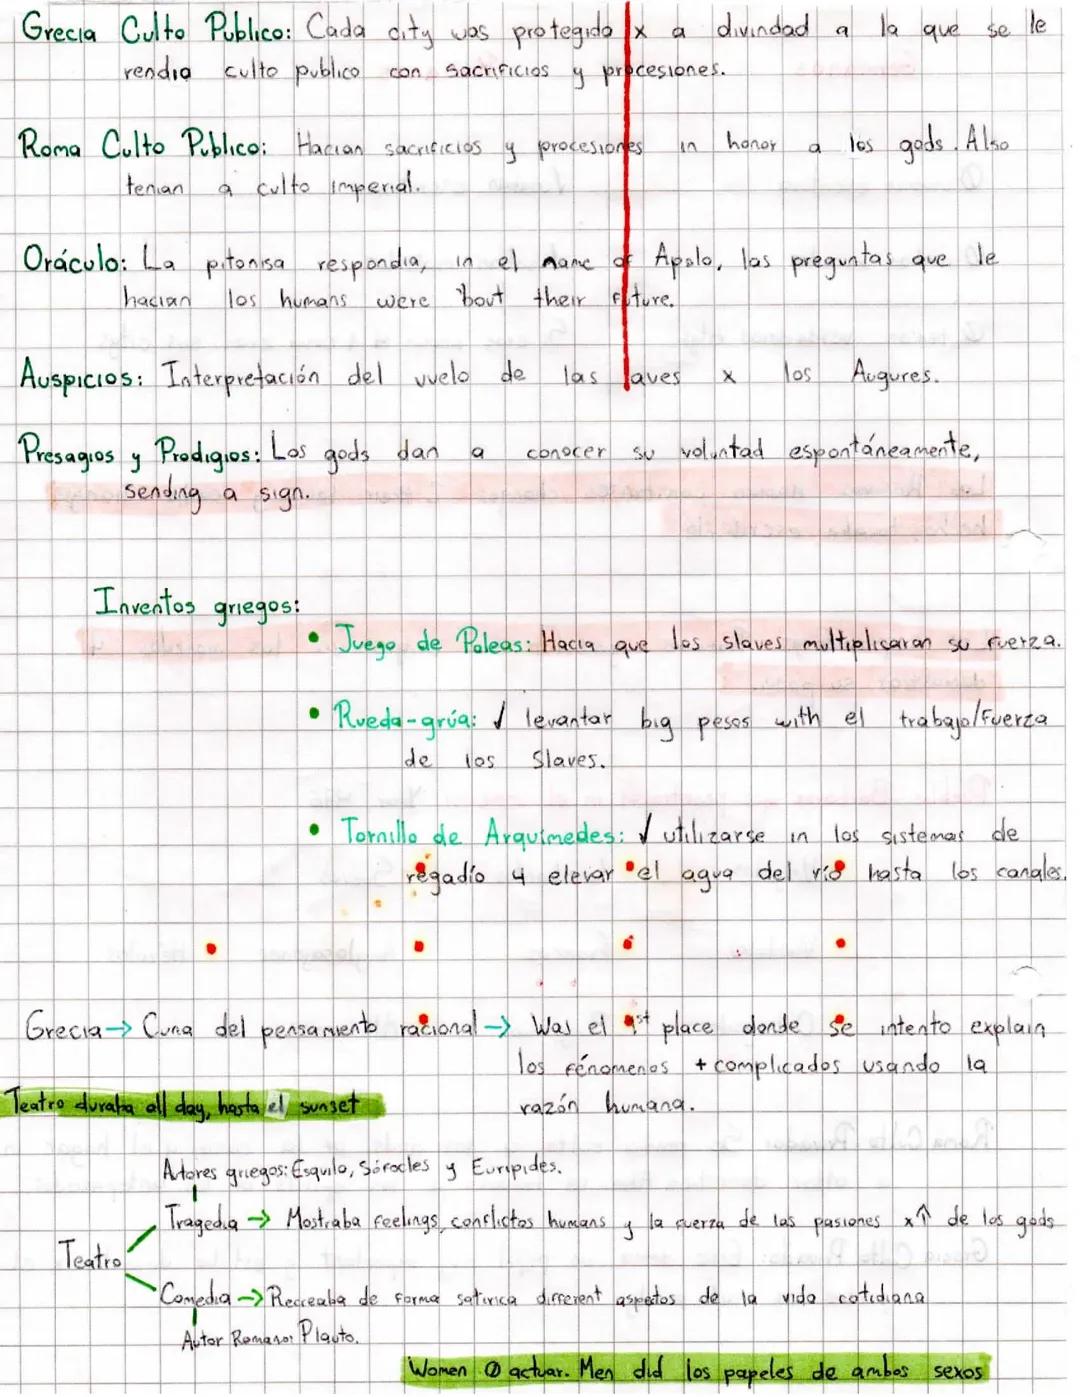 Grecia Culto Publico: Cada city was protegida x a divindad a la que se le
rendia culto publico con sacrificios y procesiones.
Roma Culto Publico: Hacian sacrificios y procesiones in honor a los gods. Also
tenian a culto imperial.
Oráculo: La pitonisa respondia, in el name of Apolo, las preguntas que le
hacian los humans were 'bout their future.
Auspicios: Interpretación del vuelo de las aves x los Augures.
Presagios y Prodigios: Los gods dan a conocer su voluntad espontáneamente,
sending a sign.
Inventos griegos:
• Juego de Poleas: Hacia que los slaves multiplicaran su fuerza.
• Rueda-grúa: √ levantar big pesos with el trabajo/fuerza
de los Slaves.
• Tornillo de Arquímedes: √ utilizarse in los sistemas de
regadío y elevar el agua del río hasta los canales.
Grecia → Cuna del pensamiento racional → Was el 1st place donde se intento explain
los fénomenos + complicados usando la
razón humana.
Teatro duraba all day, hasta el sunset
Autores griegos: Esquilo, Sófocles y Eurípides.
Tragedia → Mostraba feelings, conflictos humans y la fuerza de las pasiones x↑ de los gods
Teatro
Comedia → Recreaba de forma satirica different aspectos de la vida cotidiana
Autor Romano: Plauto.
Women Ø actuar. Men did los papeles de ambos sexos